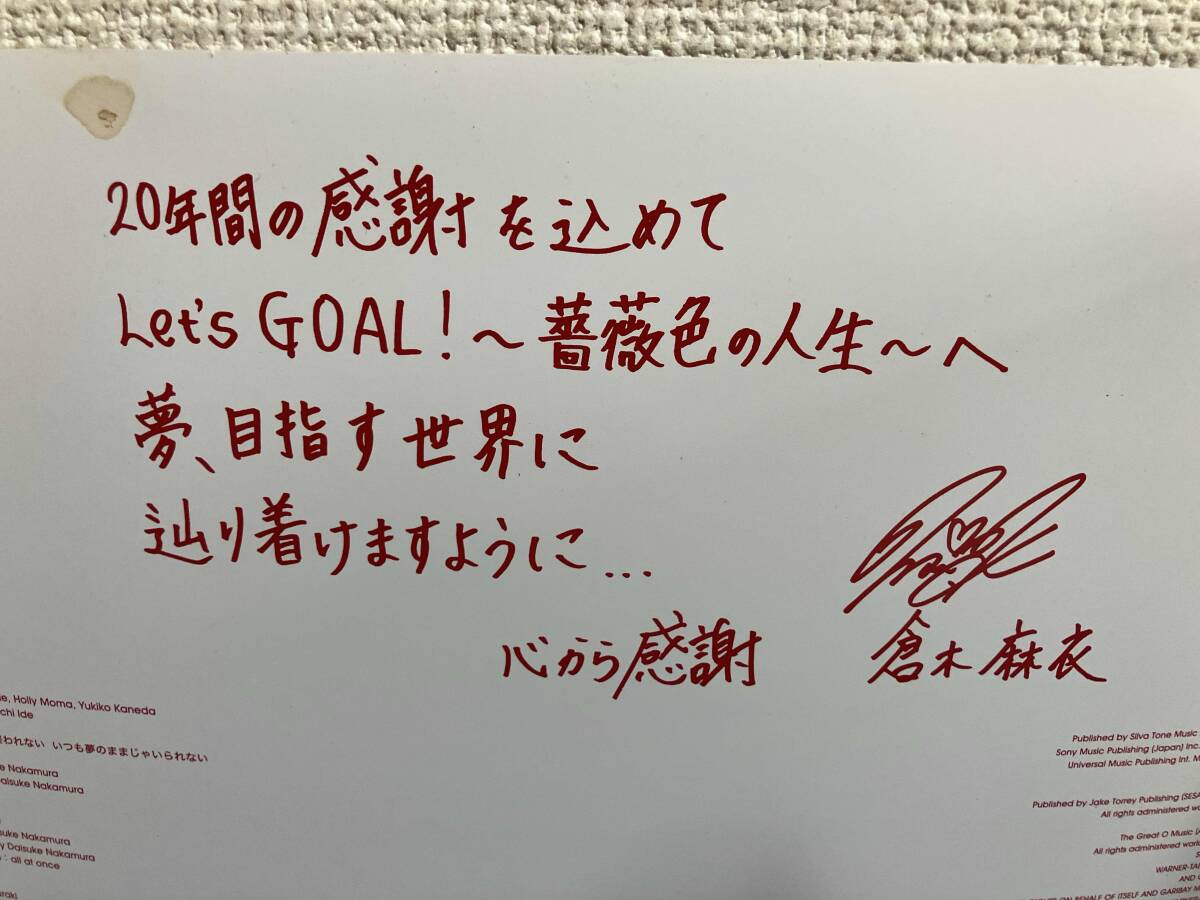 20年間の感謝を込めて
Let's GOAL!～薔薇色の人生～へ
夢、目指す世界に
辿り着けますように...
心から感謝
倉木麻衣
Holly Moma, Yukiko Kaneda
chi Ide
われない いつも夢のままじゃいられない
Nakamura
Daisuke Nakamura
suke Nakamura
y Daisuke Nakamura
: all at once
uraki
Published by Silva Tone Music
Sony Music Publishing (Japan) Inc.
Universal Music Publishing Int. M
Published by Jake Torrey Publishing (SESA
All rights administered wo
The Great O Music (A
All rights administered world
WARNER-TA
AND
ON BEHALF OF ITSELF AND GARIBAY M